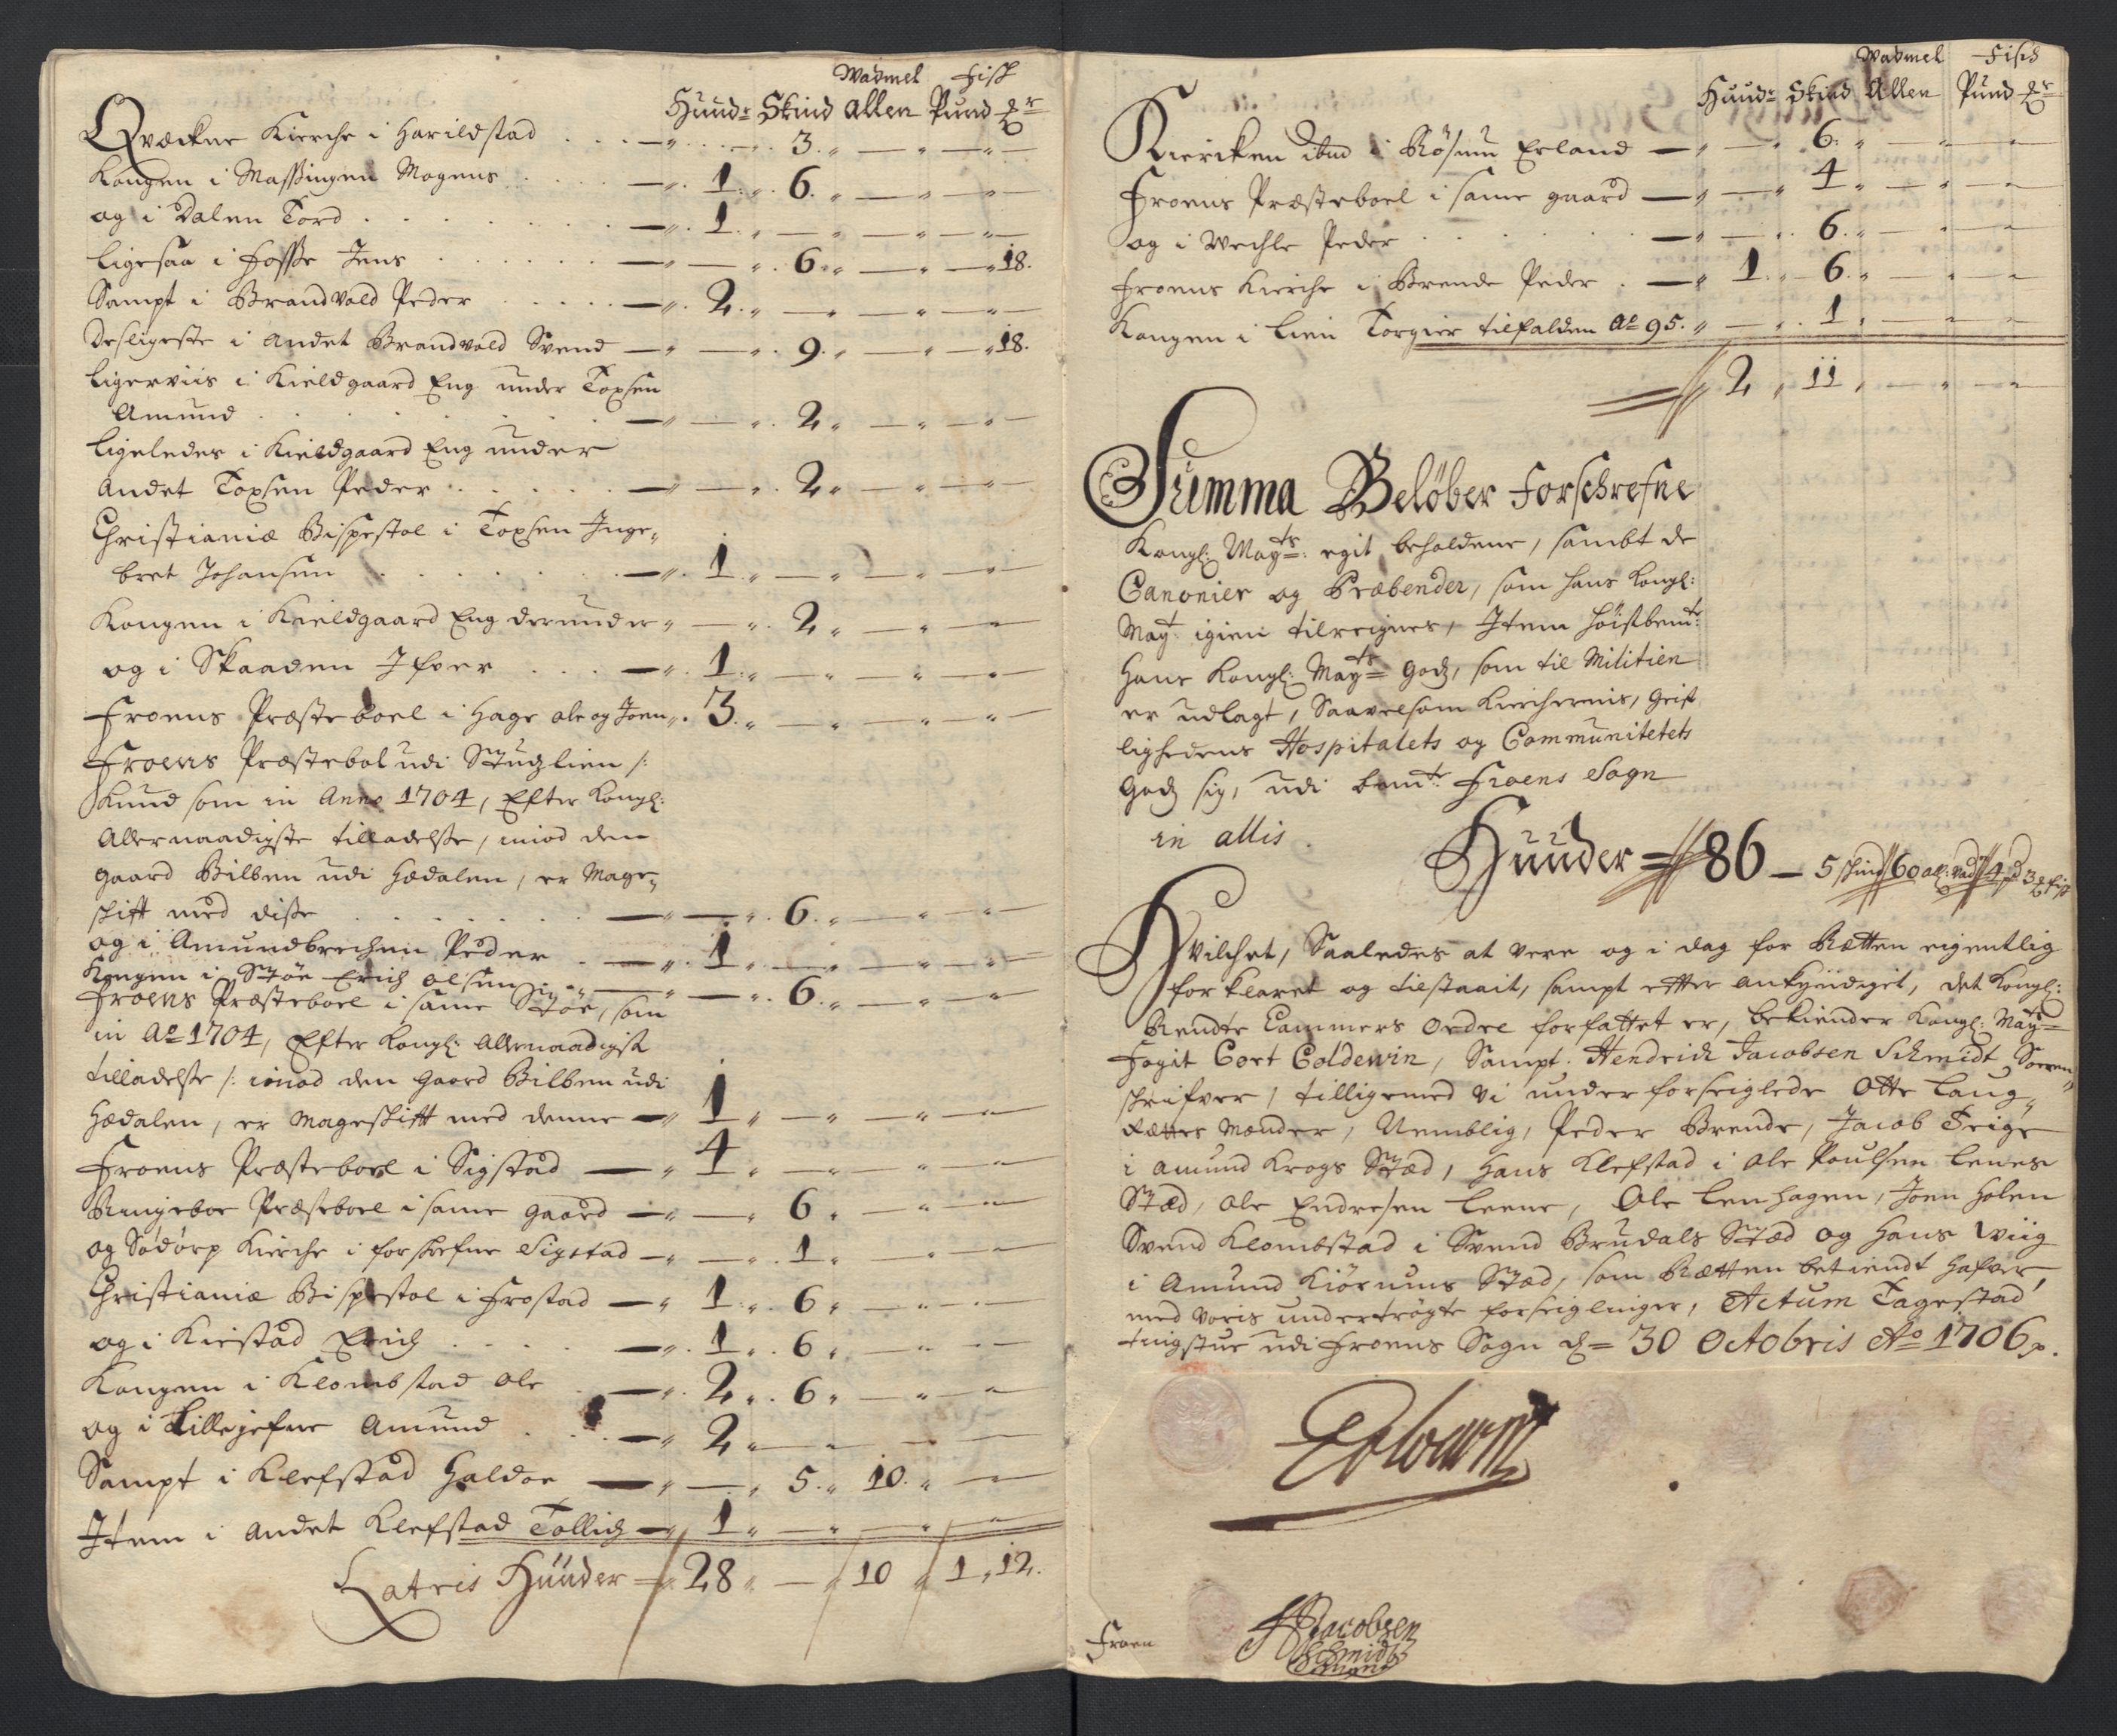 Wadmel Fisk
Huud: Skind Allen Pund
Qvæckne Kierche i Harildstad 3
Kongen i Massingen Mogens 1 6
og i Dalen Tord 1
Ligesaa i Fosse Jens 6 18.
Sampt i Brandvold Peder 2
Desligeste i Andet Brandvold Svend 9 18.
Ligerviis i Kieldgaard Eng under Toxsen
Amund 2
Ligeledes i Kieldgaard Eng under
Andet Toxsen Peder 2
Christianiæ Bispestol i Toxsen Inge-
bret Johansen 1
Kongen i Kieldgaard Eng derunder 2
og i Skaaden Ifver 1
Froens Præsteboel i Hage ole og Joen 3
Froens Præstebol udi Stuchlien /:
Knud som in Anno 1704, Efter Kongl:
Allernaadigste tilladelse, imod den
gaard Bilben udi Hædalen, er Mage-
skift med disse 6
og i Amundbrechen Peder 1
Kongen i Støe Erich olsen 6
Froens Præsteboel i same Støe, som
in Ao 1704, Efter Kongl: Allernaadigst
tilladelse /: imod den gaard Bilben udi
Hædalen, er Mageskift med denne 1
Froens Præsteboel i Sigstad 4
Ringeboe Præsteboel i same gaard 6
og Sødørp Kierche i forschrefne Sigstad 1
Christianiæ Bispestol i Frostad 1 6
og i Kiestad Erich 1 6
Kongen i Klombstad ole 2 6
og i Lillejefne Amund 2
Sampt i Klefstad Haldoe 5 10
Item i Andet Klefstad Tollich 1
Latris Huuder 28 10 1 12.
Wadmel Fisch
Huud: Skind Allen Pund
Kiercken ibid i Røsum Erland 6
Froens Præsteboel i same gaard 4
og i Wechle Peder 6
Froens Kierche i Brende Peder 1 6
Kongen i Lien Torgier tilfalden Ao 95. 1
2 11
Summa Beløber Forschrefne
Kongl: Mayts: egit beholdene, sambt de
Canonier og Præbender, som hans Kongl:
Mayt: igien tilreignes, Item høistbemte:
Hans Kongl: Mayts Godz, som til Militien
er udlagt, Saavelsom Kierchernis, Geist
lighedens Hospitalets og Communitetets
Godz sig, udi bemte: Froens Sogn
in allis
Huuder 86 5 skind 60 al: Wad 4 3 fisk
Hvilchet, Saaledes at vere og i dag for Rætten eigentlig
forklaret og tilstaait, sampt efter ankyndiget, det Kongl:
Rendte Cammers ordre forfattet er, bekiender Kongl: Mayts
Fogit Cort Coldewin, Sampt Hendrich Jacobsen Schmidt Soren-
skrifver, tilligemed vi underforseiglede Otte Laug-
Rættes Mænder, Nemblig, Peder Brende, Jacob Teige
i Amund Krogs Stæd, Hans Klefstad i ole Poulsen Lenes
Stæd, ole Endresen Leene, Ole Lenhagen, Joen Holen
Svend Klombstad i Svend Brudals Stæd og Hans Wiig
i Amund Kiørnums Stæd, som Rætten betiendt hafver,
med voris undertrøgte forseiglinger, Actum Tagestad
tingstue udi Froens Sogn d: 30 Octobris Ao 1706.
Coldewin
Froen
HJacobsen
Schmidt